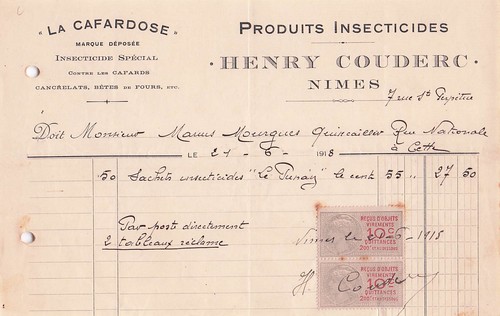 "LA CAFARDOSE"
MARQUE DÉPOSÉE
INSECTICIDE SPÉCIAL
CONTRE LES CAFARDS
CANCRELATS, BÊTES DE FOURS, ETC.
PRODUITS INSECTICIDES
· HENRY COUDERC ·
NIMES
7 rue St
Doit Monsieur Marius Mourgues Quincailler Rue Nationale
à Cette
LE 21-6- 1918
50 Sachets insecticides "Le Punaiz" le cent 55 " 27 50
Par poste directement
2 tableaux réclame
Nimes le 21-6-1918
H. Couderc
REÇUS D'OBJETS
VIREMENTS
10c
QUITTANCES
REÇUS D'OBJETS
VIREMENTS
10c
QUITTANCES